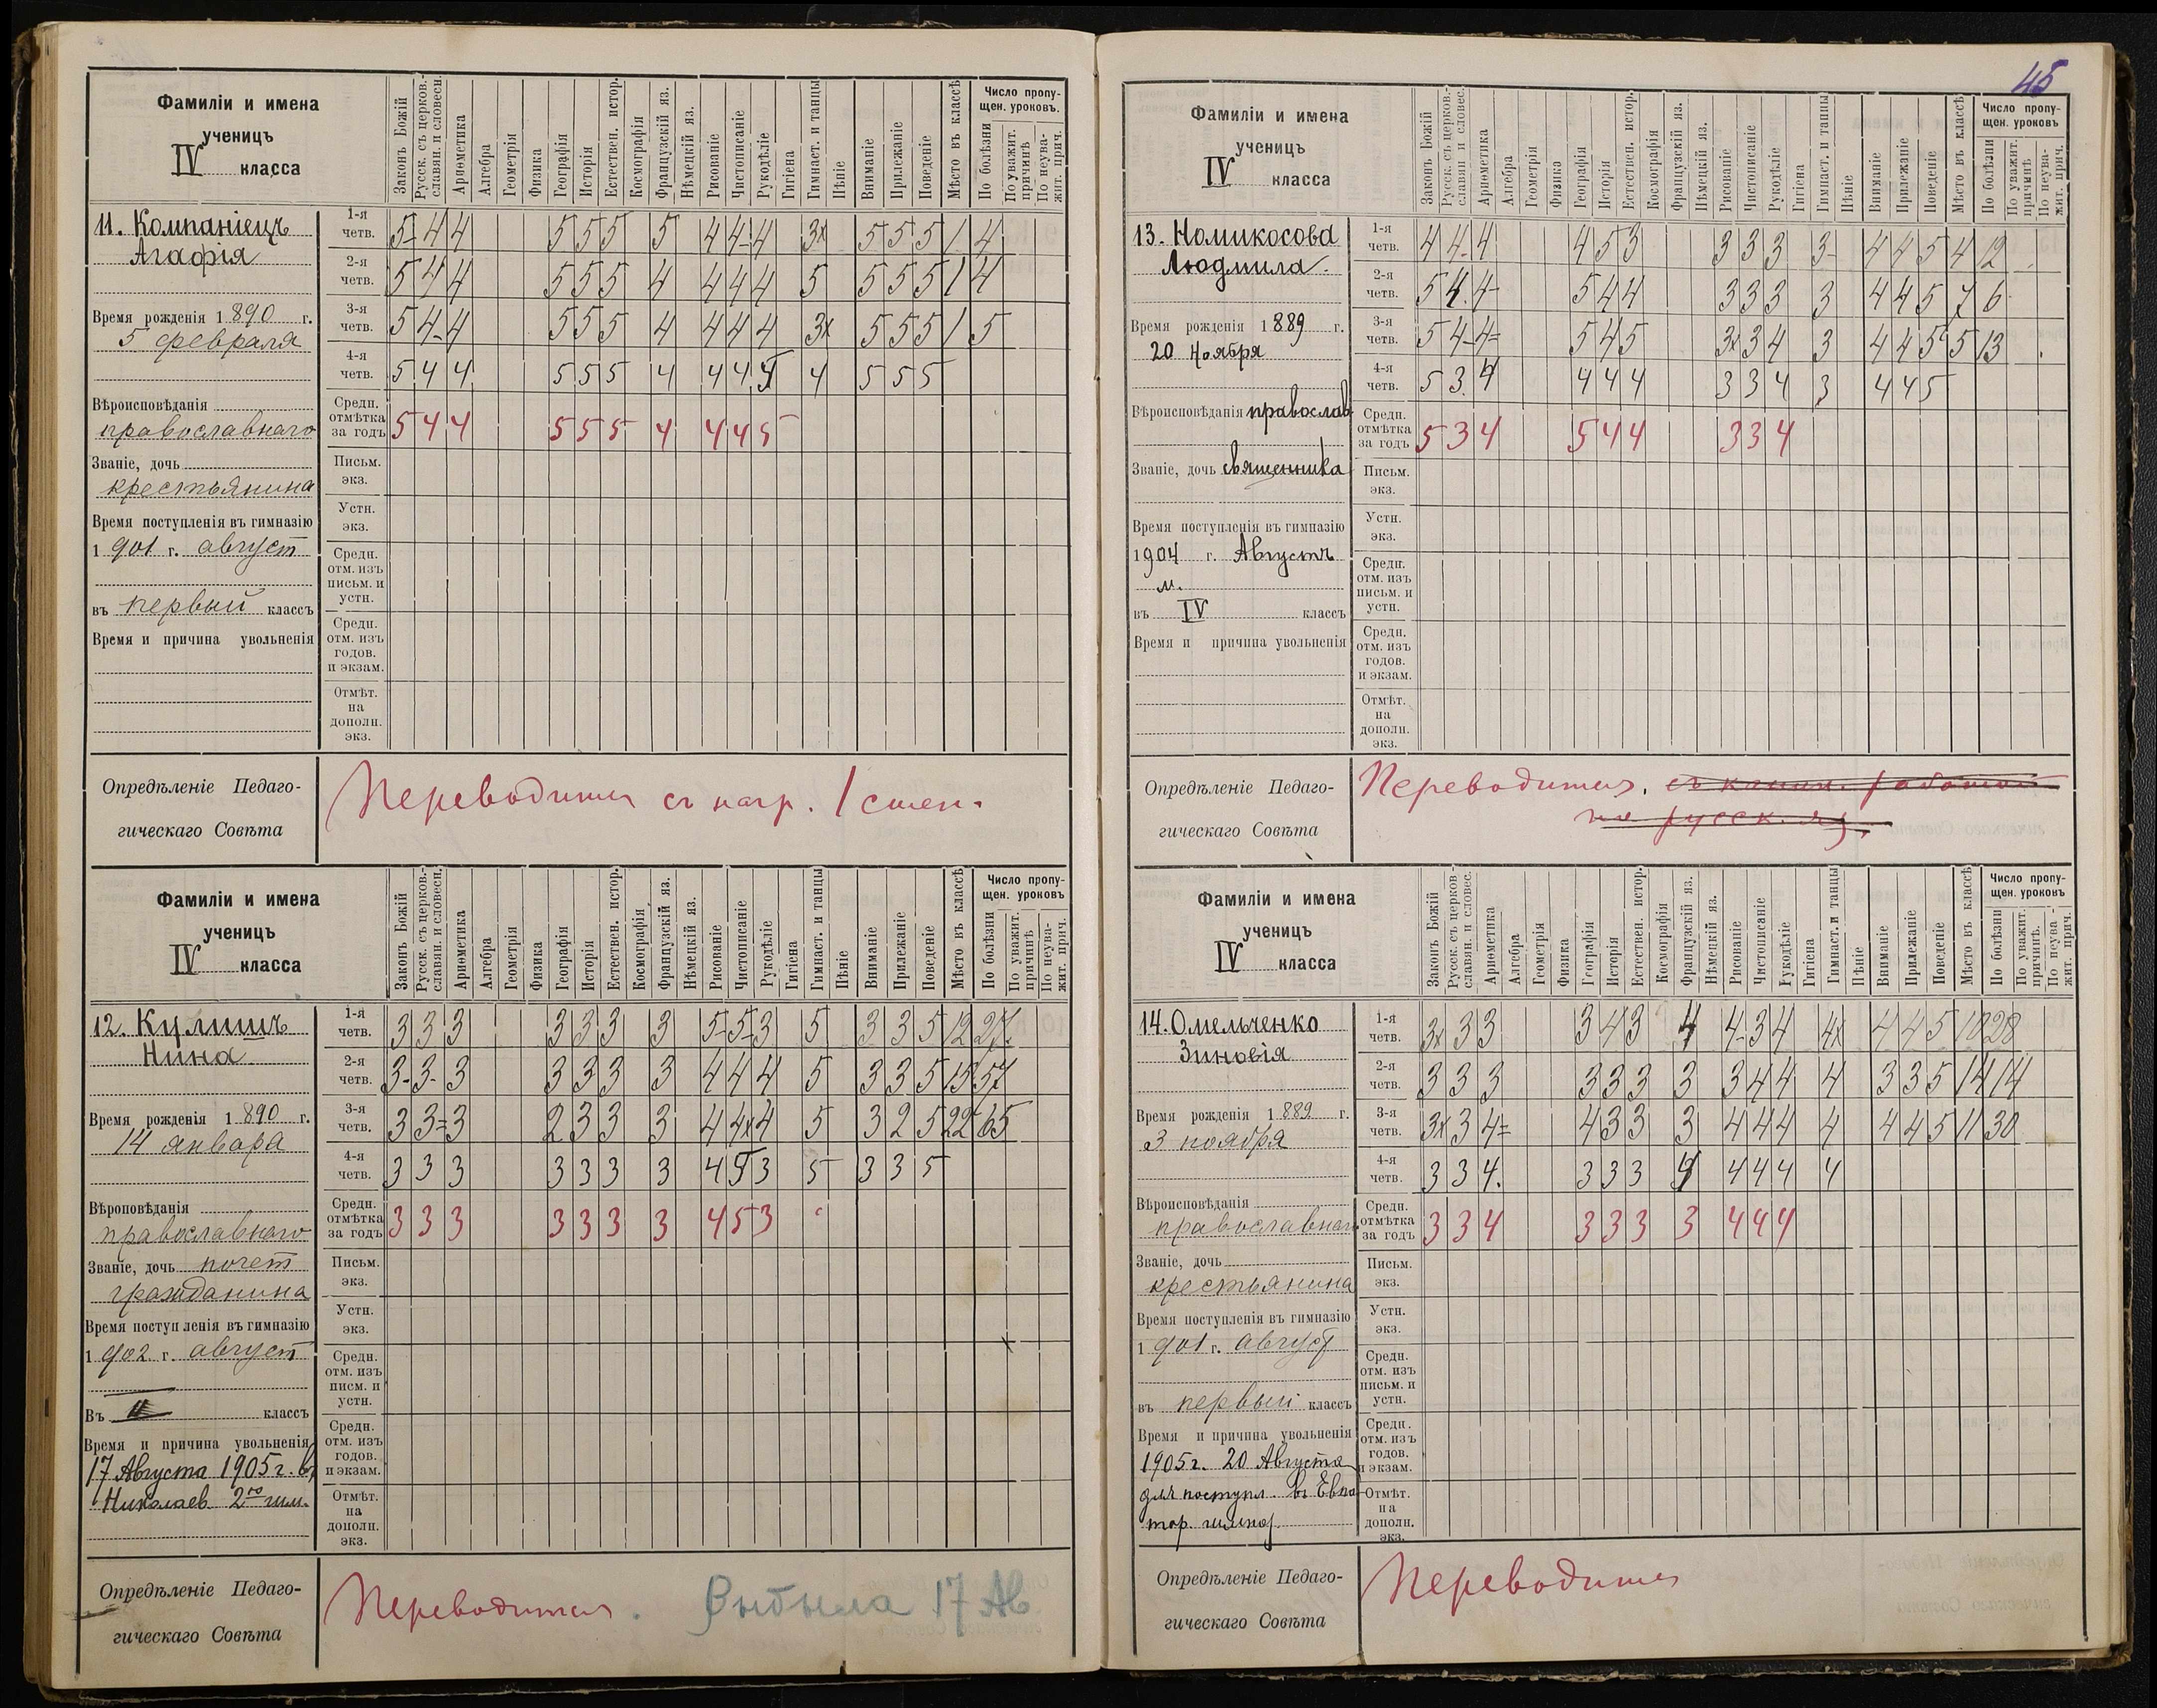 45
Фамиліи и имена
ученицъ
IV класса
Законъ Божій
Русск. съ церков.-
славян. и словесн.
Ариѳметика
Алгебра
Геометрія
Физика
Географія
Исторія
Естествен. истор.
Космографія
Французскій яз.
Нѣмецкій яз.
Рисованіе
Чистописаніе
Рукодѣліе
Гигіена
Гимнаст. и танцы
Пѣніе
Вниманіе
Прилежаніе
Поведеніе
Мѣсто въ классѣ
Число пропу-
щен. уроковъ.
По болѣзни
По уважит.
причинѣ
По неува-
жит. прич.
11. Компаніецъ
Агафія
Время рожденія 1890 г.
5 февраля
Вѣроисповѣданія
православнаго
Званіе, дочь
крестьянина
Время поступленія въ гимназію
1901 г. август
въ первый классъ
Время и причина увольненія
1-я четв. 5- 4 4 5 5 5 5 4 4- 4 3х 5 5 5 1 4
2-я четв. 5 4 4 5 5 5 4 4 4 4 5 5 5 5 1 4
3-я четв. 5 4- 4 5 5 5 4 4 4 4 3х 5 5 5 1 5
4-я четв. 5 4 4 5 5 5 4 4 4 5 4 5 5 5
Средн. отмѣтка за годъ 5 4 4 5 5 5 4 4 4 5
Письм. экз.
Устн. экз.
Средн. отм. изъ письм. и устн.
Средн. отм. изъ годов. и экзам.
Отмѣт. на дополн. экз.
Опредѣленіе Педаго-
гическаго Совѣта
Переводится съ нагр. 1 степ.
Фамиліи и имена
ученицъ
IV класса
Законъ Божій
Русск. съ церков.-
славян. и словесн.
Ариѳметика
Алгебра
Геометрія
Физика
Географія
Исторія
Естествен. истор.
Космографія
Французскій яз.
Нѣмецкій яз.
Рисованіе
Чистописаніе
Рукодѣліе
Гигіена
Гимнаст. и танцы
Пѣніе
Вниманіе
Прилежаніе
Поведеніе
Мѣсто въ классѣ
Число пропу-
щен. уроковъ
По болѣзни
По уважит.
причинѣ
По неува-
жит. прич.
12. Кулишъ
Нина
Время рожденія 1890 г.
14 января
Вѣроповѣданія
православнаго
Званіе, дочь почет
гражданина
Время поступленія въ гимназію
1902 г. август
Въ II классъ
Время и причина увольненія
17 Августа 1905 г. въ
Николаев. 2ую гим.
1-я четв. 3 3 3 3 3 3 3 5- 5- 3 5 3 3 5 12 27
2-я четв. 3- 3- 3 3 3 3 3 4 4 4 5 3 3 5 15 57
3-я четв. 3 3= 3 2 3 3 3 4 4х 4 5 3 2 5 22 65
4-я четв. 3 3 3 3 3 3 3 4 5 3 5 3 3 5
Средн. отмѣтка за годъ 3 3 3 3 3 3 3 4 5 3
Письм. экз.
Устн. экз.
Средн. отм. изъ писм. и устн.
Средн. отм. изъ годов. и экзам.
Отмѣт. на дополн. экз.
Опредѣленіе Педаго-
гическаго Совѣта
Переводится. Выбыла 17 Ав
Фамиліи и имена
ученицъ
IV класса
Законъ Божій
Русск. съ церков.-
славян и словес.
Ариѳметика
Алгебра
Геометрія
Физика
Географія
Исторія
Естествен. истор.
Космографія
Французскій яз.
Нѣмецкій яз.
Рисованіе
Чистописаніе
Рукодѣліе
Гигіена
Гимнаст. и танцы
Пѣніе
Вниманіе
Прилежаніе
Поведеніе
Мѣсто въ классѣ
Число пропу-
щен. уроковъ
По болѣзни
По уважит.
причинѣ
По неува-
жит. прич.
13. Номикосова
Людмила.
Время рожденія 1889 г.
20 Ноября
Вѣроисповѣданія православ
Званіе, дочь священника
Время поступленія въ гимназію
1904 г. Августъ
м.
въ IV классъ
Время и причина увольненія
1-я четв. 4 4- 4 4 5 3 3 3 3 3- 4 4 5 4 12
2-я четв. 5 4. 4- 5 4 4 3 3 3 3 4 4 5 7 6
3-я четв. 5 4- 4= 5 4 5 3х 3 4 3 4 4 5 5 13
4-я четв. 5 3. 4 4 4 4 3 3 4 3 4 4 5
Средн. отмѣтка за годъ 5 3 4 5 4 4 3 3 4
Письм. экз.
Устн. экз.
Средн. отм. изъ письм. и устн.
Средн. отм. изъ годов. и экзам.
Отмѣт. на дополн. экз.
Опредѣленіе Педаго-
гическаго Совѣта
Переводится. съ каник. работой
по русск. яз.
Фамиліи и имена
ученицъ
IV класса
Законъ Божій
Русск. съ церков-
славян. и словес.
Ариѳметика
Алгебра
Геометрія
Физика
Географія
Исторія
Естествен. истор.
Космографія
Французскій яз.
Нѣмецкій яз.
Рисованіе
Чистописаніе
Рукодѣліе
Гигіена
Гимнаст. и танцы
Пѣніе
Вниманіе
Прилежаніе
Поведеніе
Мѣсто въ классѣ
Число пропу-
щен. уроковъ
По болѣзни
По уважит.
причинѣ.
По неува-
жит. прич.
14. Омельченко
Зиновія
Время рожденія 1889 г.
3 ноября
Вѣроисповѣданія
православнаго
Званіе, дочь
крестьянина
Время поступленія въ гимназію
1901 г. август
въ первый классъ
Время и причина увольненія
1905 г. 20 Августа
для поступл. въ Евпа-
тор. гимназ.
1-я четв. 3х 3 3 3 4 3 4 4- 3 4 4х 4 4 5 10 28
2-я четв. 3 3 3 3 3 3 3 3 4 4 4 3 3 5 14 14
3-я четв. 3х 3 4= 4 3 3 3 4 4 4 4 4 4 5 11 30
4-я четв. 3 3 4. 3 3 3 4 4 4 4 4
Средн. отмѣтка за годъ 3 3 4 3 3 3 3 4 4 4
Письм. экз.
Устн. экз.
Средн. отм. изъ письм. и устн.
Средн. отм. изъ годов. и экзам.
Отмѣт. на дополн. экз.
Опредѣленіе Педаго-
гическаго Совѣта
Переводится